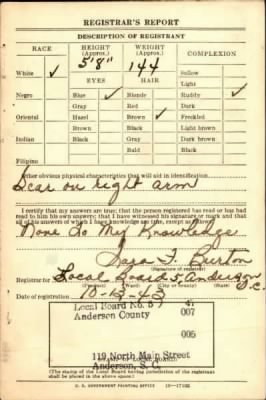 REGISTRAR'S REPORT
DESCRIPTION OF REGISTRANT
RACE HEIGHT (Approx.) WEIGHT (Approx.) COMPLEXION
5'8" 144
White ✓ Sallow
EYES HAIR Light
Negro Blue ✓ Blonde Ruddy ✓
Gray Red Dark
Oriental Hazel Brown ✓ Freckled
Brown Black Light brown
Indian Black Gray Dark brown
Bald Black
Filipino
Other obvious physical characteristics that will aid in identification
Scar on right arm
I certify that my answers are true; that the person registered has read or has had
read to him his own answers; that I have witnessed his signature or mark and that
all of his answers of which I have knowledge are true, except as follows:
None To My Knowledge
Sara F. Burton
(Signature of registrar)
Registrar for Local Board 5, Anderson S.C.
Date of registration 10-12-43
Local Board No. 5 41
Anderson County 007
005
119 North Main Street
Anderson, S. C.
(The stamp of the Local Board having jurisdiction of the registrant
shall be placed in the above space.)
U. S. GOVERNMENT PRINTING OFFICE